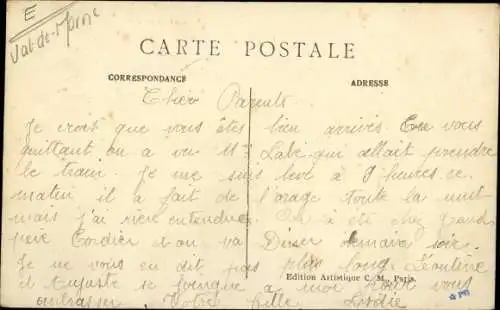 E
Val-de-Marne
CARTE POSTALE
CORRESPONDANCE
ADRESSE
Cher Parents
Je croit que vous êtes bien arrivés. En vous
quittant on a vu Mr Labe qui allait prendre
le train. Je me suis levé à 9 heures ce
matin il a fait de l'orage toute la nuit
mais j'ai rien entendue. On à été chez grand
père Cordier et on va Diner demain soir.
Je ne vous en dit pas plus long. Léontine
et Auguste se joingue a moi pour vous
embrasser. Votre fille
Edition Artistique C. M. Paris